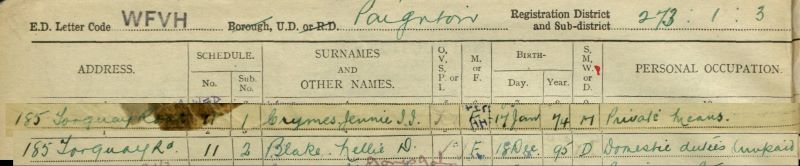 E.D. Letter Code WFVH Borough, U.D. or R.D. Paignton Registration District and Sub-district 273 : 1 : 3
ADDRESS. SCHEDULE. No. Sub. No. SURNAMES AND OTHER NAMES. O, V, S, P or I. M. or F. BIRTH- Day. Year. S, M, W, or D. PERSONAL OCCUPATION.
185 Torquay Road 11 1 Crymes, Jennie I.I. F 17 Jan 74 M Private Means.
185 Torquay Rd. 11 2 Blake Nellie D. F 18 Dec 95 D Domestic duties (unpaid